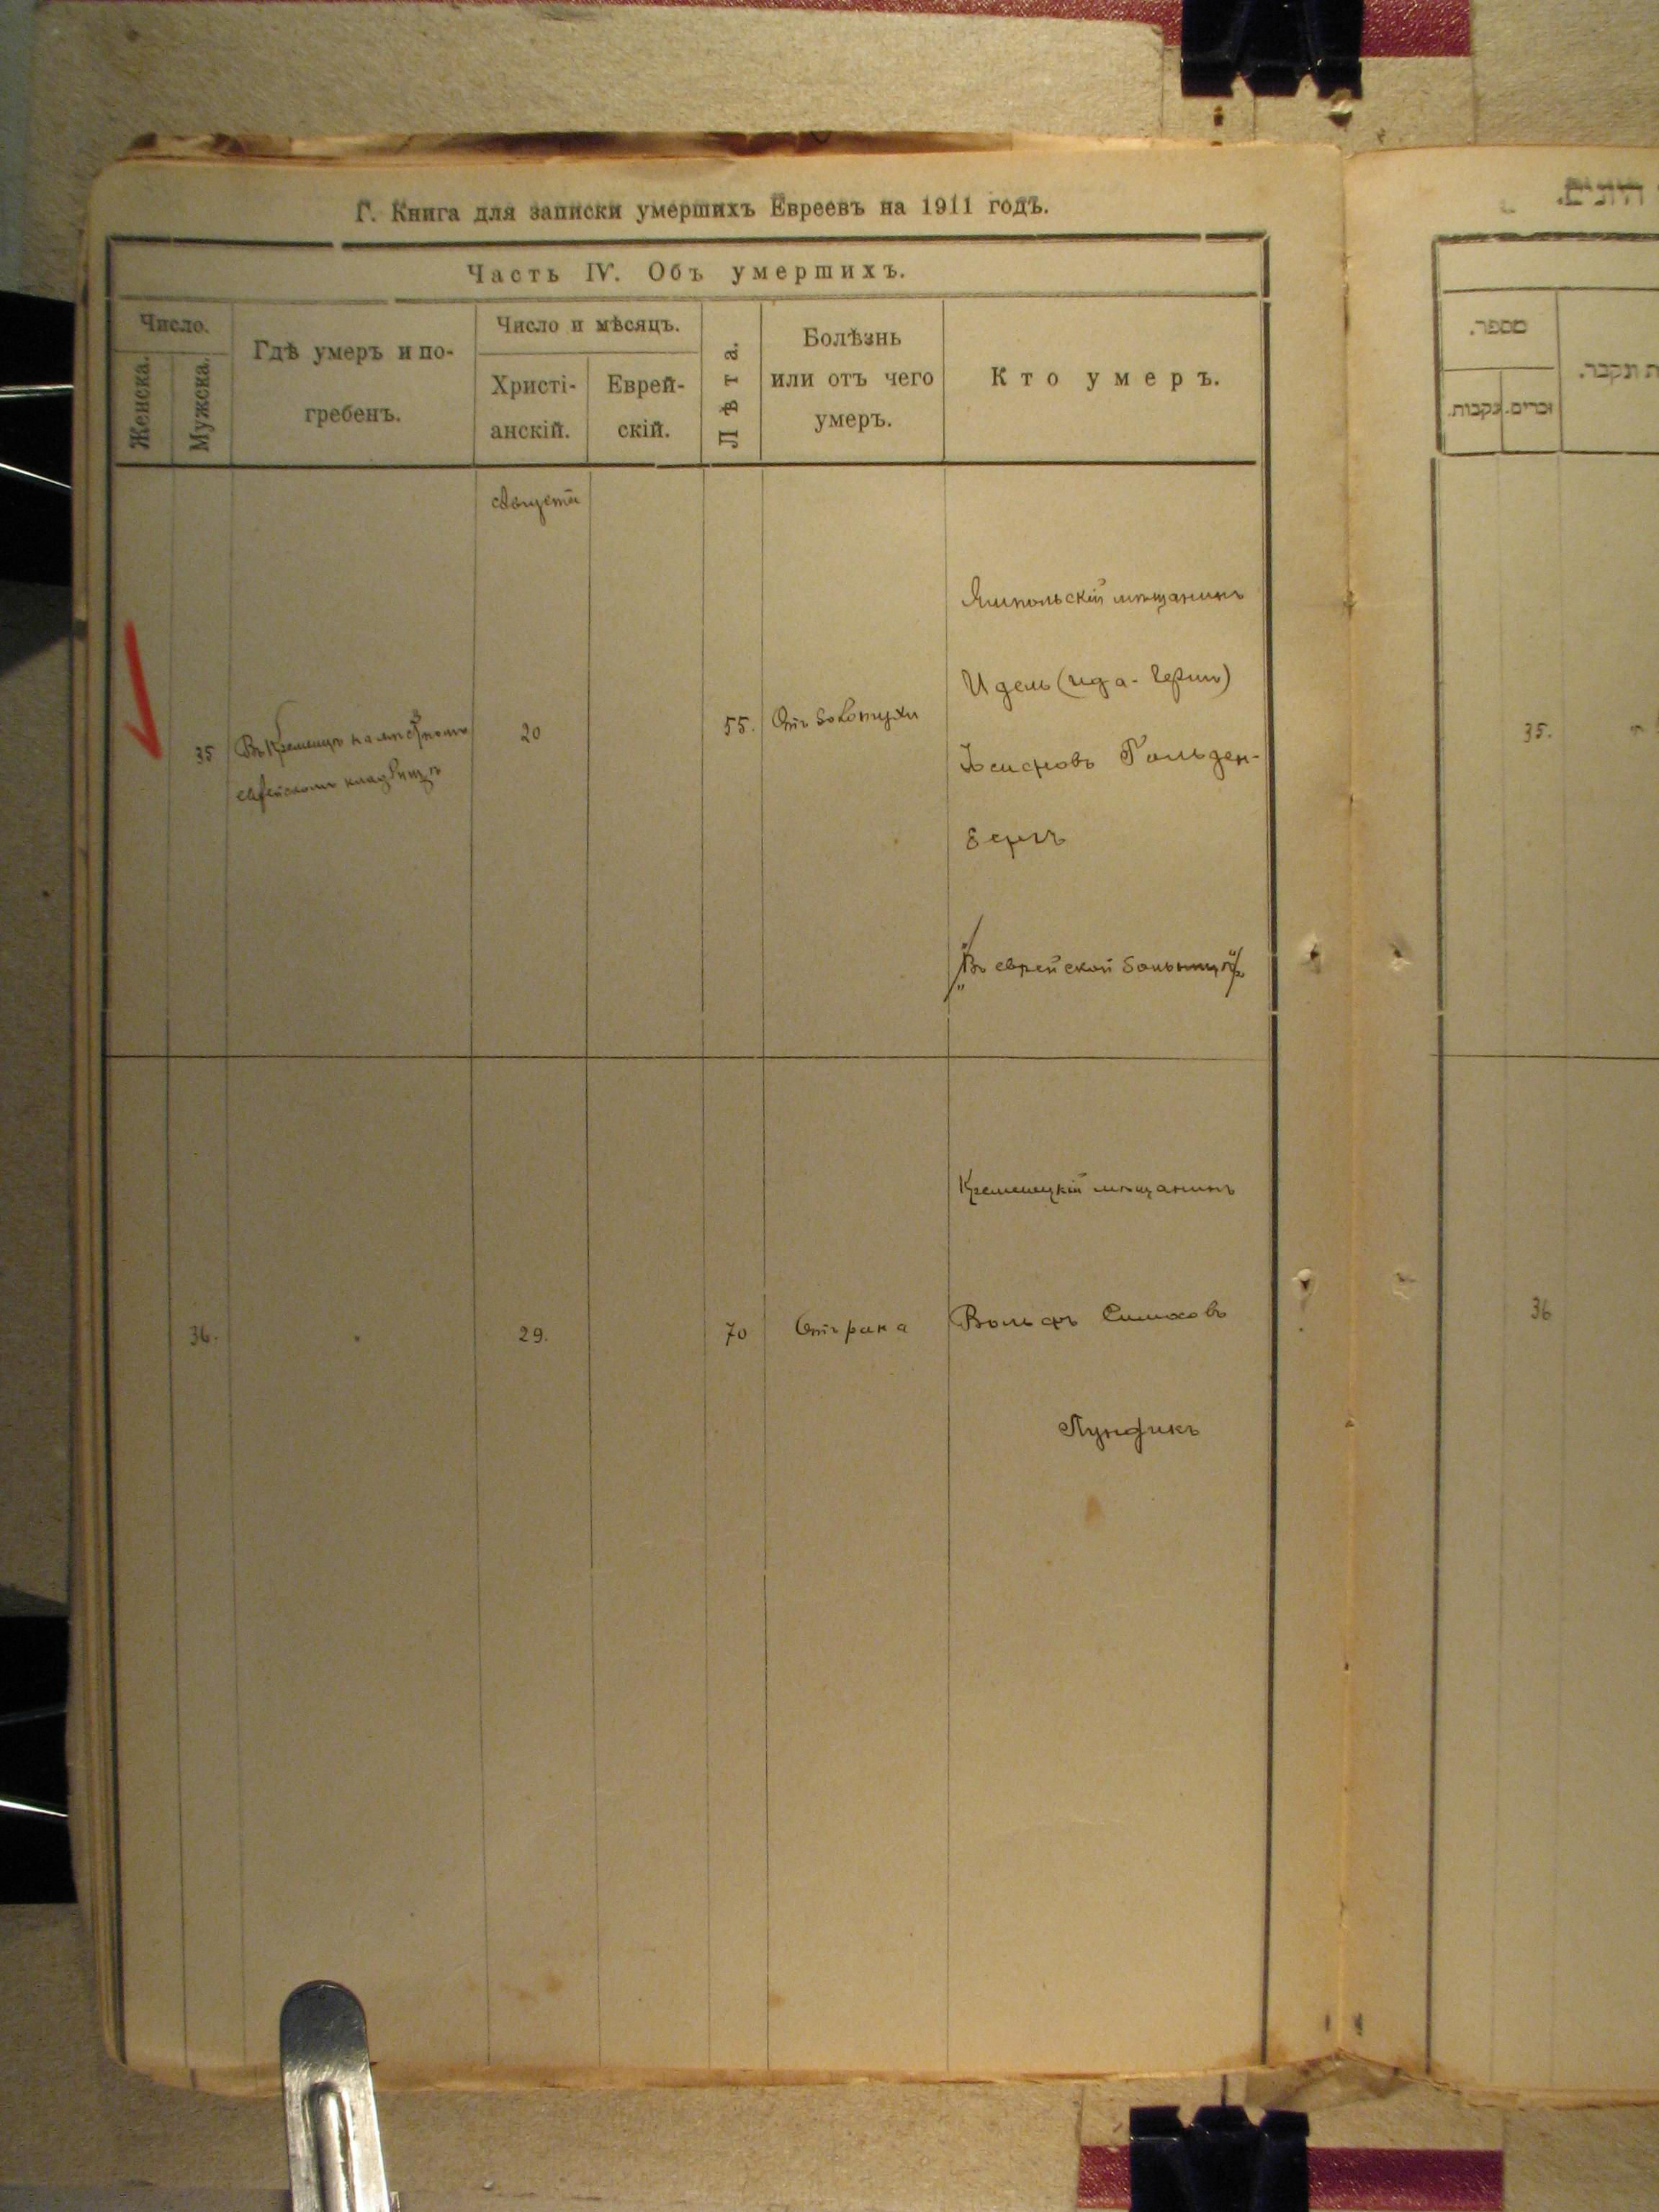 Г. Книга для записки умершихъ Евреевъ на 1911 годъ.
Часть IV. Объ умершихъ.
Число.
Женска.
Мужска.
Гдѣ умеръ и по-
гребенъ.
Число и мѣсяцъ.
Христі-
анскій.
Еврей-
скій.
Лѣта.
Болѣзнь
или отъ чего
умеръ.
Кто умеръ.
Августа
35
Въ Кременцѣ на мѣстномъ
еврейскомъ кладбищѣ
20
55.
Отъ
Ямпольскій мѣщанинъ
Идель (Іуда-Гершъ)
Іосифовъ Гольден-
бергъ
"Въ еврейской больницѣ"
36.
"
29.
70
Отъ рака
Кременецкій мѣщанинъ
Вольфъ Симховъ
Пундикъ
מספר.
זכרים.
נקבות.
ונקבר.
35.
36